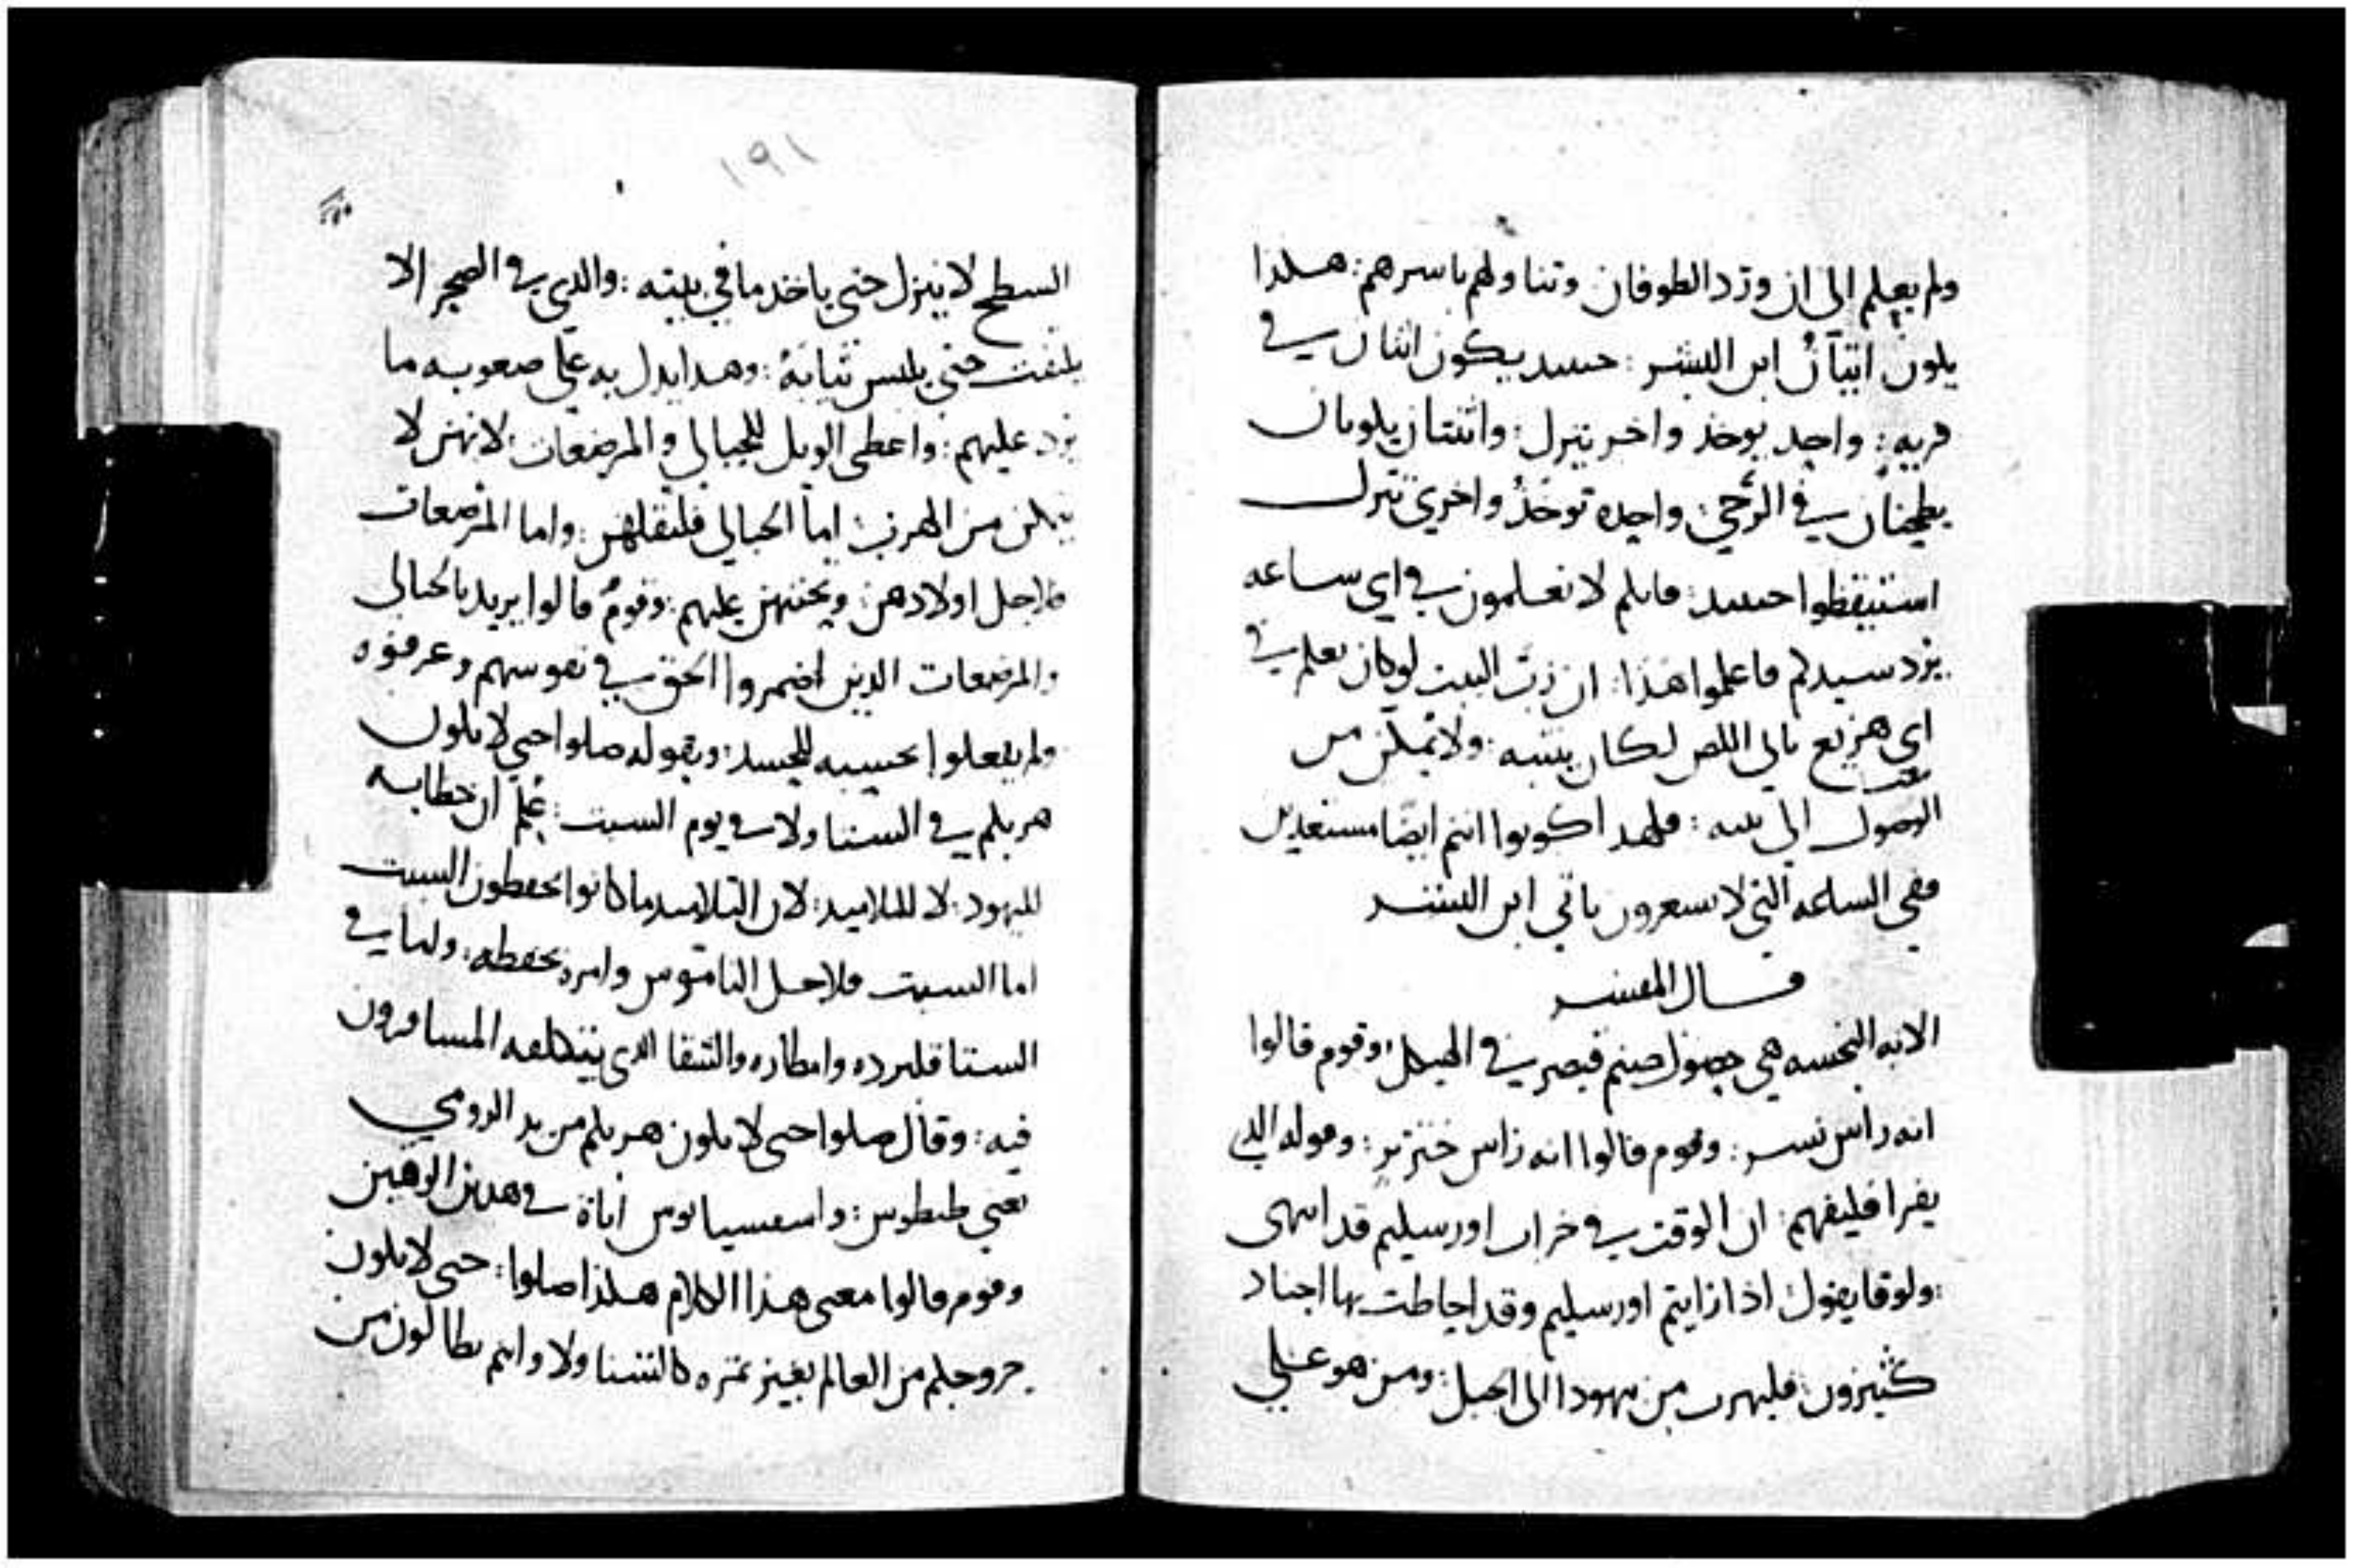 ولم يعلم الى ان ورد الطوفان وتناولهم باسرهم: هلذا
يلون اتيان ابن البشر: حينيد يكون اثنان في
قريه: واحد يوخذ واخر يترك: واثنتان يلونان
يطحنان في الرحي: واحده توخذ واخري تترك
استيقظوا حينيد: فانلم لا تعلمون في اي ساعه
يرد سيدلم فاعلموا هذا: ان رب البيت لو كان يعلم في
اي هزيع ياتي اللص لكان ينتبه: ولا يملن من
الوصول الى بيته: فلهدا كونوا انتم ايضا مستعدين
ففي الساعه التي لا تشعرون ياتي ابن البشر
قال المفسر
الايه النجسه هي حصول صنم قيصر في الهيكل: وقوم قالوا
انه راس نسر: وقوم قالوا انه راس خنزير: وقوله الدي
يقرا فليفهم: ان الوقت في خراب اورسليم قد انتهى
ولوقا يقول اذا رايتم اورسليم وقد احاطت بها اجناد
كثيرون: فليهرب من يهودا الى الجبل: ومن هو علي
١٩١
السطح لا ينزل حتي ياخد ما في بيته: والدي في الصحرا لا
يلتفت حتي يلبس ثيابه: وهدا يدل به علي صعوبه ما
يرد عليهم: واعطى الويل للحبالي والمرضعات: لانهن لا
يتملن من الهرب: اما الحبالي فلثقلهن: واما المرضعات
فلاجل اولادهن: ومحنتهن عليهم: وقوم قالوا يريد بالحبالي
والمرضعات الدين اضمروا الحق في نفوسهم وعرفوه
ولم يفعلوا بحسبه للحسد: وبقوله صلوا حتي لا يلون
هربلم في الشتا ولا في يوم السبت: علم ان خطابه
لليهود: لا للتلاميد: لان التلاميد ما كانوا يحفظون السبت
اما السبت فلاجل الناموس وامره بحفظه: ولما في
الشتا فلبرده وامطاره والشقا الدي يتكلفه المسافرون
فيه: وقال صلوا حتي لا يلون هربلم من يد الرومي
يعني طيطوس: واسفسيانوس اباه في هدين الوقتين
وقوم قالوا معنى هذا الكلام هلذا صلوا: حتي لا يلون
خروجلم من العالم بغير ثمره كالشتا ولا وانتم بطالون من